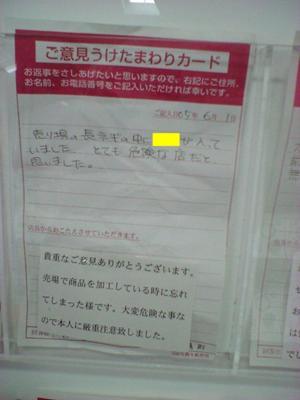 ご意見うけたまわりカード
お返事をさしあげたいと思いますので、右記にご住所、
お名前、お電話番号をご記入いただければ幸いです。
ご記入日 05年 6月 1日
売り場の長ネギの中に が入って
いました。とても危険な店だと
思いました。
店長からお こたえさせていただきます。
貴重なご意見ありがとうございます。
売場で商品を加工している時に忘れ
てしまった様です。大変危険な事な
ので本人に厳重注意致しました。